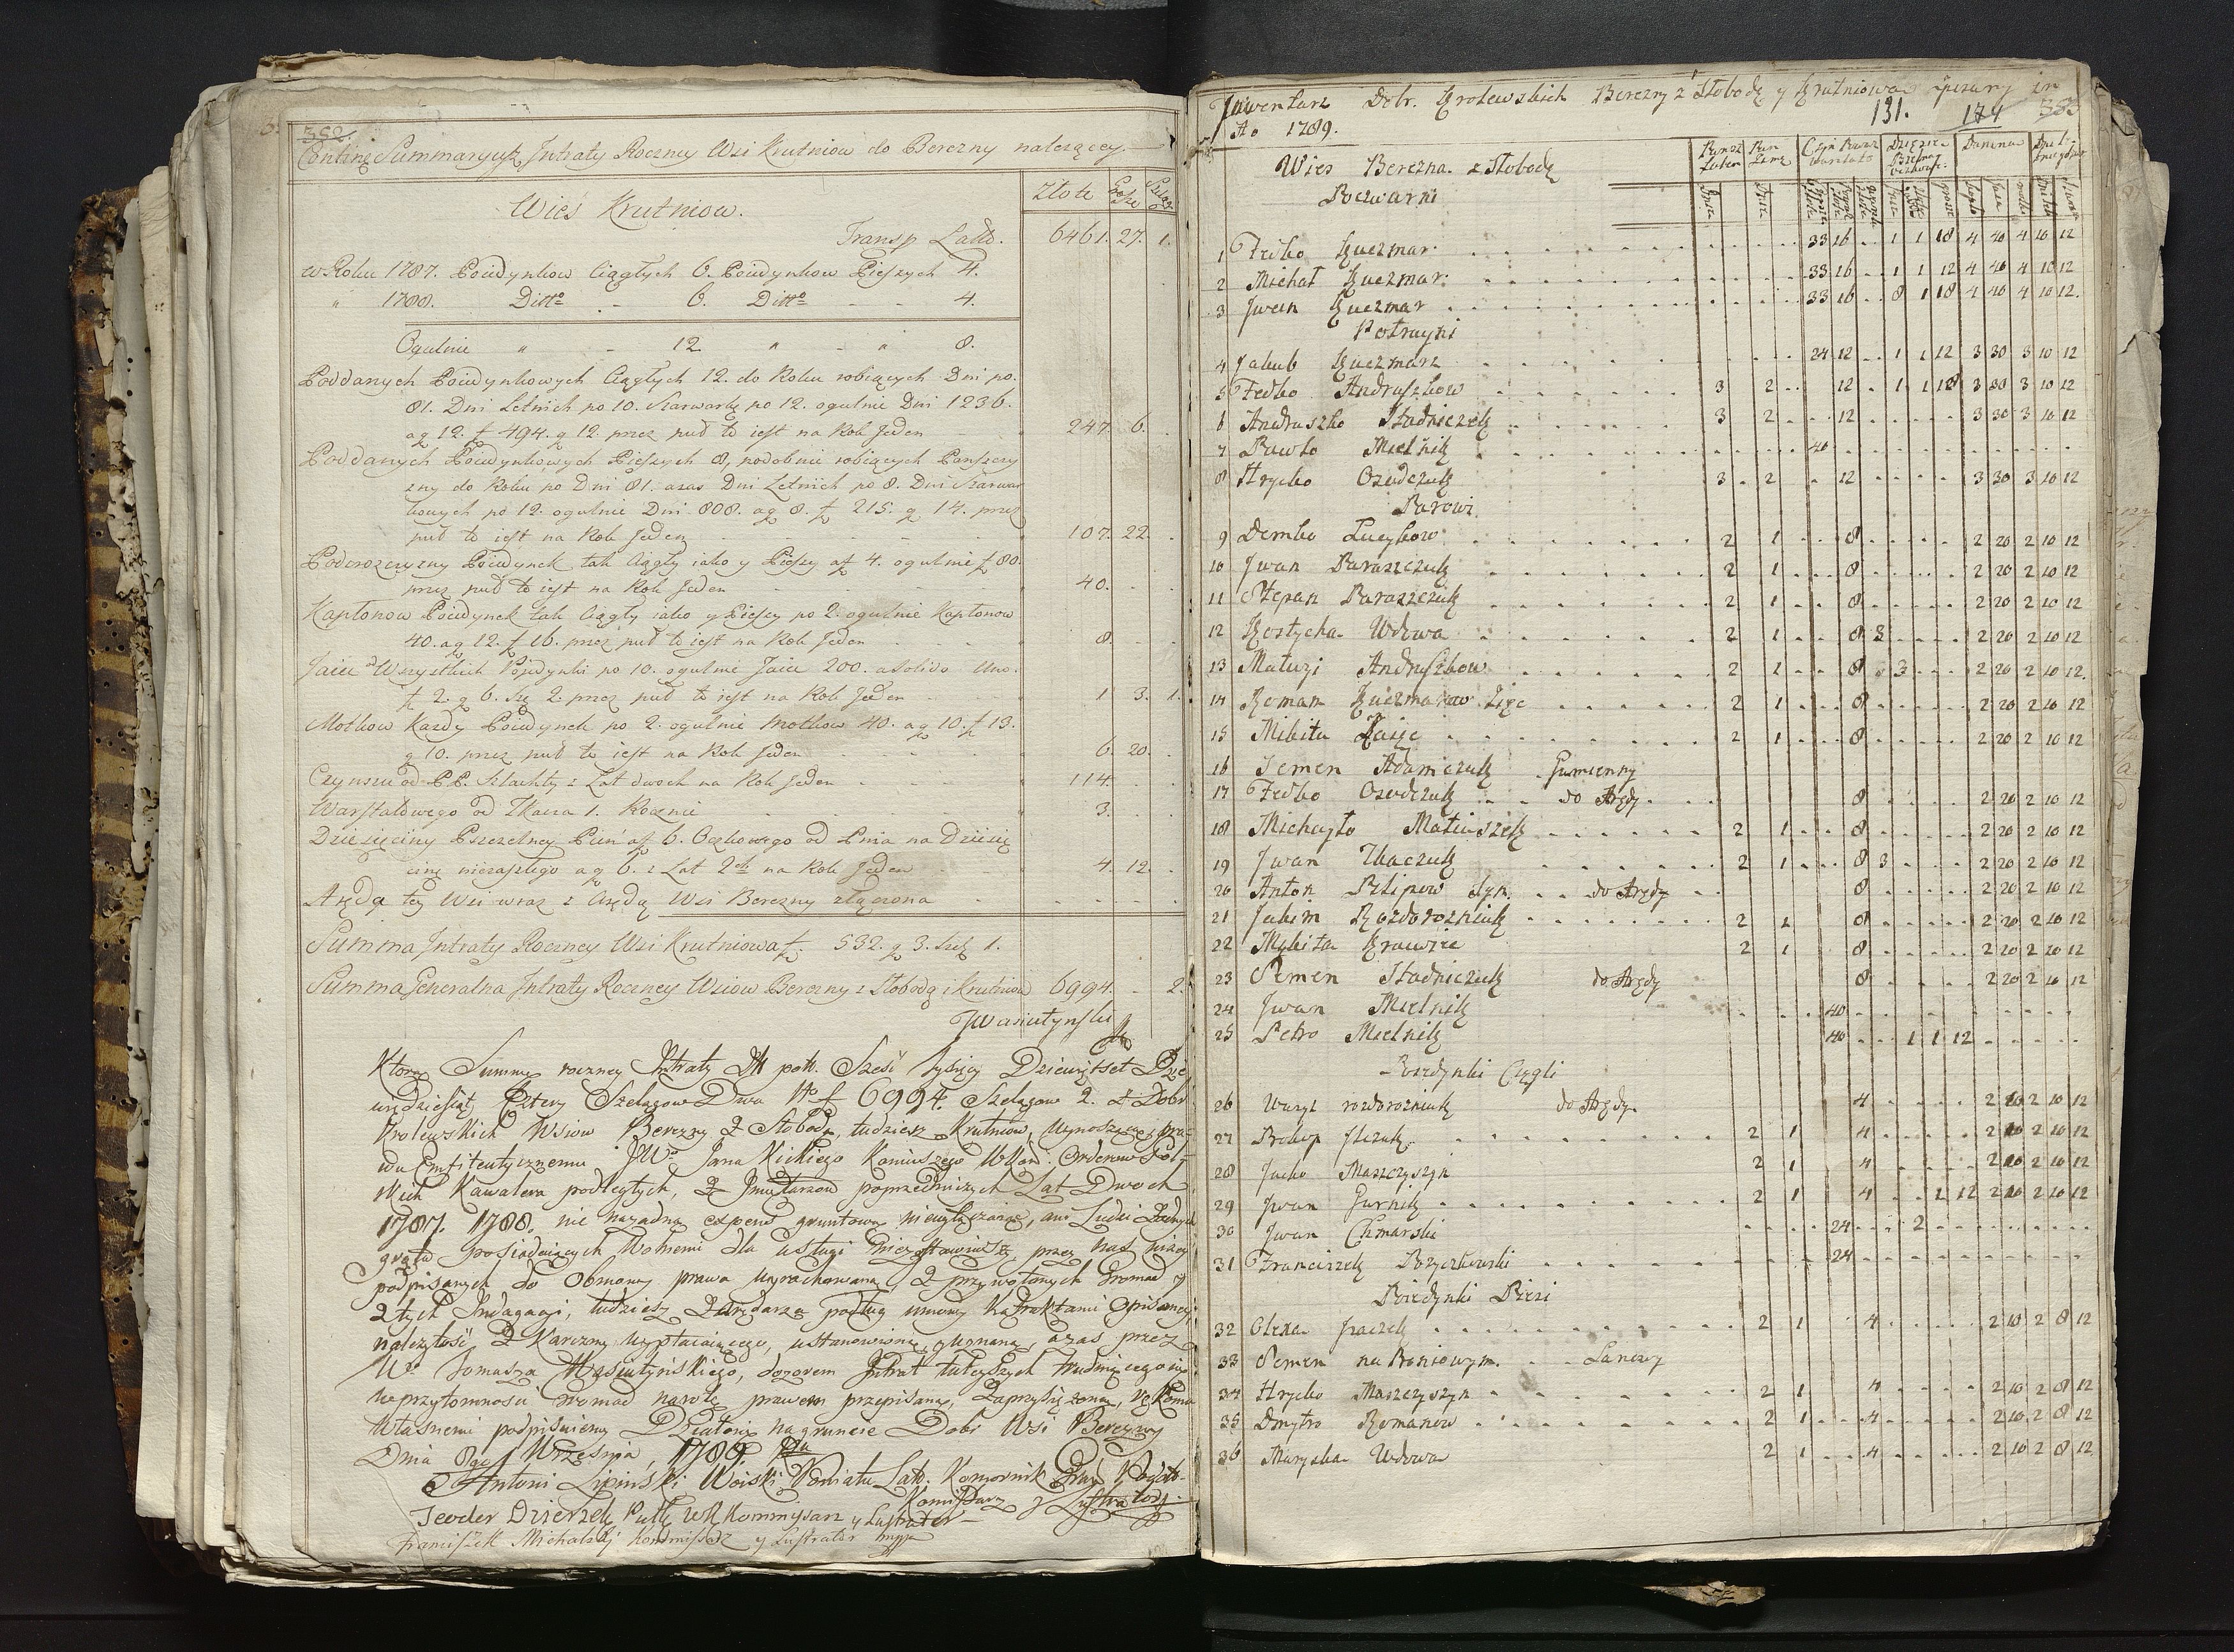 352.
Contin: Summaryusz Intraty Roczney Wsi Krutniow do Berezny należącey.
Złote Gro sze Szeląg
Wieś Krutniow.
Transp Latto. 6461. 27. 1.
w Roku 1787. Poiedynkow Ciągłych 6. Poiedynkow Pieszych 4.
" 1788. Ditto - 6. Ditto - - 4.
Ogulnie " - 12. " - " 8.
Poddanych Poiedynkowych Ciągłych 12. do Roku robiących Dni po.
81. Dni Letnich po 10. Szarwarkę po 12. ogulnie Dni 1236.
a g 12. f 494. g 12. przez puł to iest na Rok Jeden 247. 6.
Poddanych Poiedynkowych Pieszych 8, podobnie robiących Panszczy
zny do Roku po Dni 81. azas Dni Letnich po 8. Dni Szarwar
kowych po 12. ogulnie Dni 808. a g 8. f 215. g 14. przez
puł to iest na Rok Jeden 107. 22.
Podorozczyzny Poiedynek tak Ciągły iako y Pieszy a f 4. ogulnie f 80.
przez puł to iest na Rok Jeden 40.
Kapłonow Poiedynek tak Ciągły iako y Pieszy po 2. ogulnie Kapłonow
40. a g 12. f 16. przez puł to iest na Rok Jeden 8.
Jaiec od Wszystkich Poiedynki po 10. ogulnie Jaiec 200. a Solido Uno.
f 2. g 6. Szę 2. przez puł to iest na Rok Jeden 1 3. 1.
Motkow Kazdy Poiedynek po 2. ogulnie Motkow 40. a g 10. f 13.
g 10. przez puł to iest na Rok Jeden 6. 20.
Czynszu od P.P. Szlachty z Lat dwoch na Rok Jeden 114.
Warsztatowego od Tkacza 1. Rocznie 3.
Dziesięciny Pszczelney Pień a f 6. Oczkowego od Pnia na Dziesię
cinę niezaszłego a g 6. z Lat 2ch na Rok Jeden 4. 12.
Arędą tey Wsi wraz z Arędą Wsi Berezny złączona
Summa Intraty Roczney Wsi Krutniowa f. 532. g 3. Szelg 1.
Summa Generalna Intraty Roczney Wsiow Berezny z Słobodą i Krutniow 6994. - 2.
JWasiutyński
Ktora Summa roczney Intraty Zł pols. Sześć Tysięcy Dziewięćset Dzie
więdziesiąt Cztery Szelągow Dwa No f 6994. Szelągow 2. z Dobr
Krolewskich Wsiow Berezny z Słobodą, tudziesz Krutniow, wynosząca, pra
wu Emfiteutycznemu JWo Jana Kickiego Koniuszego WKor. Orderow Pol=
skich Kawalera podległych, z Inwetarzow poprzedniczych Lat Dwoch
1787. 1788. nie nazadną expens gruntową niewyłączaiąc, ani Ludzi Żadnych
grąta posiadaiących Wolnemi dla usługi niezostawuiąc, przez nas nizey
podpisanych do Obmowy prawa wyrachowana, z przywołanych Gromad y
z tych Indagacyi, tudziesz z Arędarza podług umowy Kątraktami opisaney
nalezytość z Karczmy wypłacaiącego, ustanowiona y uznana, azas przez
Wo Tomasza Wasiutyńskiego, dozorem Intrat tuteyszych trudniącego się
w przytomnosci Gromad na rotę prawem przepisaną, Zaprzysiężona, ręką
własnemi podpisuiemy Działo się na gruncie Dobr Wsi Berezny
Dnia 8go Września, 1789. Ru
Antoni Lipiński Woiski Powiatu Lat. Komornik
Komisarz y Lustrator
Teodor Dzierżek Pułk WK Kommisarz y Lustrator
Franciszek Michalski Kommissarz y Lustrator mpp
Inwentarz Dobr. Krolewskich Berezny z Słobodą y Krutniowa spisany in
Ao 1789. 131. 174 353
Wies Berezna z Słobodą
Poczwarni
Dziesięcina Danina
1 Fedko Kuczmar 33 16 1 1 18 4 40 4 10 12
2 Michał Kuczmar 33 16 1 1 12 4 40 4 10 12
3 Jwan Kuczmar 33 16 8 1 18 4 40 4 10 12.
Potrayni
4 Jakub Kuczmarz 24 12 1 1 12 3 30 3 10 12
5 Fedko Andruszkow 3 2 12 1 1 18 3 30 3 10 12
6 Andruszko Stadniczuk 3 2 12 3 30 3 10 12
7 Pawło Mielnik 40
8 Hrycko Osadczuk 3 2 12 3 30 3 10 12
Parowi
9 Demko Lucykow 2 1 8 2 20 2 10 12
10 Jwan Paraszczuk 2 1 8 2 20 2 10 12
11 Stepan Paraszczuk 2 1 8 2 20 2 10 12
12 Kostycha Wdowa 2 1 8 3 2 20 2 10 12
13 Matwij Andruszkow 2 1 8 3 2 20 2 10 12.
14 Roman Kuczmarow Zięc 2 1 8 2 20 2 10 12
15 Mikita Zaięc 2 1 8 2 20 2 10 12
16 Semen Adamczuk Gumienny
17 Fedko Osadczuk do Arędy 8 2 20 2 10 12
18 Michayło Matiuszek 2 1 8 2 20 2 10 12
19 Jwan Tkaczuk 2 1 8 3 2 20 2 10 12
20 Anton Pilipow Syn do Arędy 8 2 20 2 10 12
21 Jakim Rozdorozniuk 2 1 8 2 20 2 10 12
22 Mykita Krawiec 2 1 8 2 20 2 10 12
23 Semen Stadniczuk do Arędy 8 2 20 2 10 12
24 Jwan Mielnik 40
25 Petro Mielnik 40 1 1 12
Poiedynki Ciągli
26 Wasyl rozdorozniuk do Arędy 4 2 10 2 10 12
27 Prokop Ilczuk 2 1 4 2 10 2 10 12
28 Jacko Maszczyszyn 2 1 4 2 10 2 10 12
29 Jwan Gurnik 2 1 4 1 12 2 10 2 10 12
30 Jwan Chmarski 24 2
31 Franciszek Pozyczkowski 24
Poiedynki Piesi
32 Olexa 2 1 4 2 10 2 8 12
33 Semen na Laniowy
34 Hrycko Maszczyszyn 2 1 4 2 10 2 8 12
35 Dmytro Romanow 2 1 4 2 10 2 8 12
36 Maryska Wdowa 2 1 4 2 10 2 8 12.